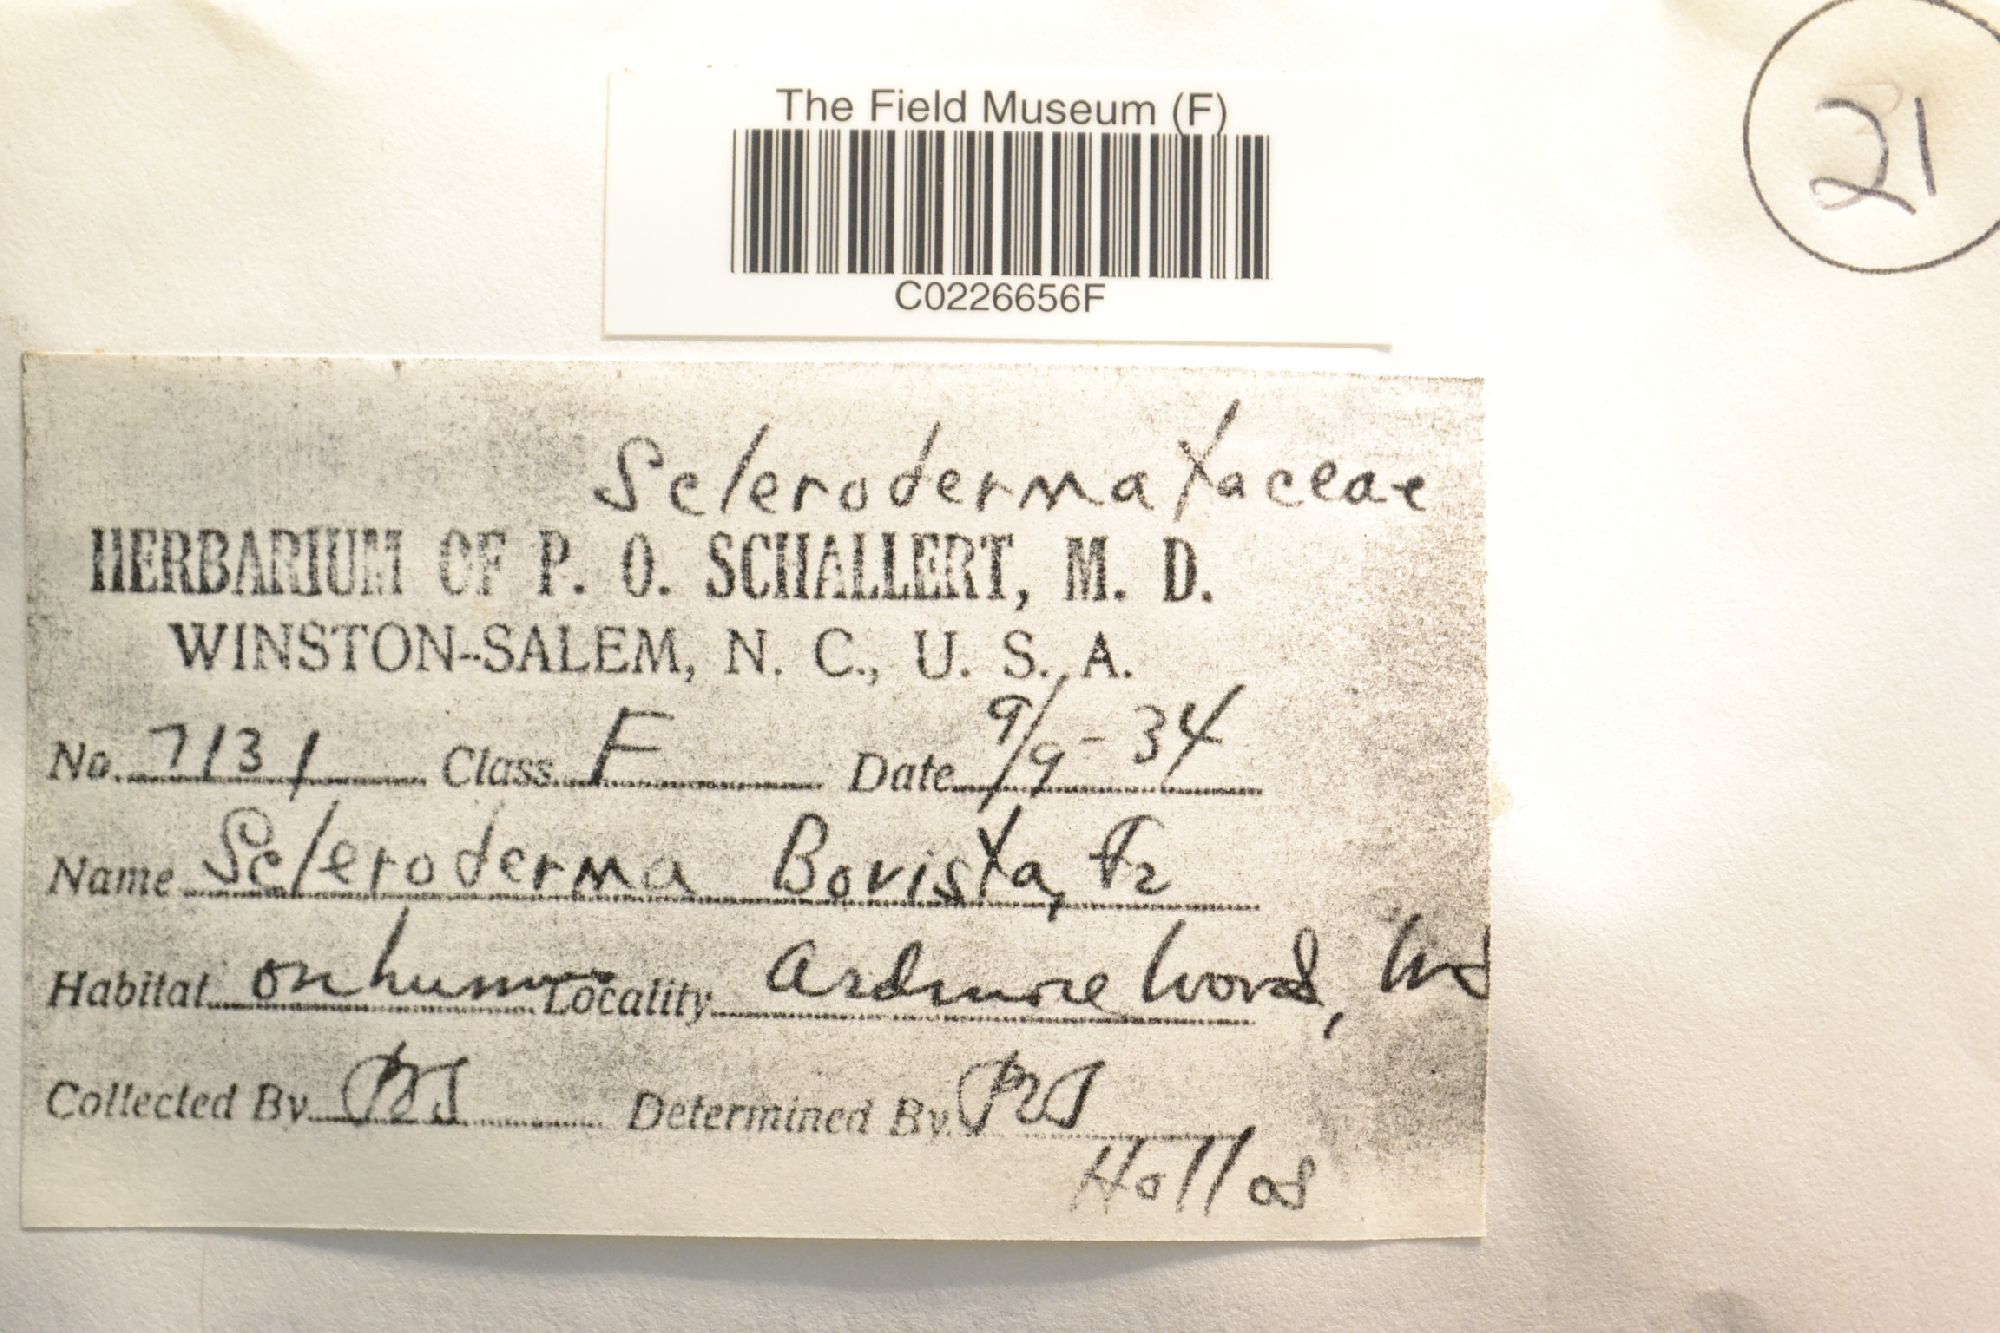 The Field Museum (F)
C0226656F
21
Sclerodermataceae
HERBARIUM OF P. O. SCHALLERT, M. D.
WINSTON-SALEM, N. C., U. S. A.
No. 7131 Class F Date 9/9-34
Name Scleroderma Bovista, Fr
Habitat on humus Locality Ardmore Woods,
Collected By Determined By
Hollos